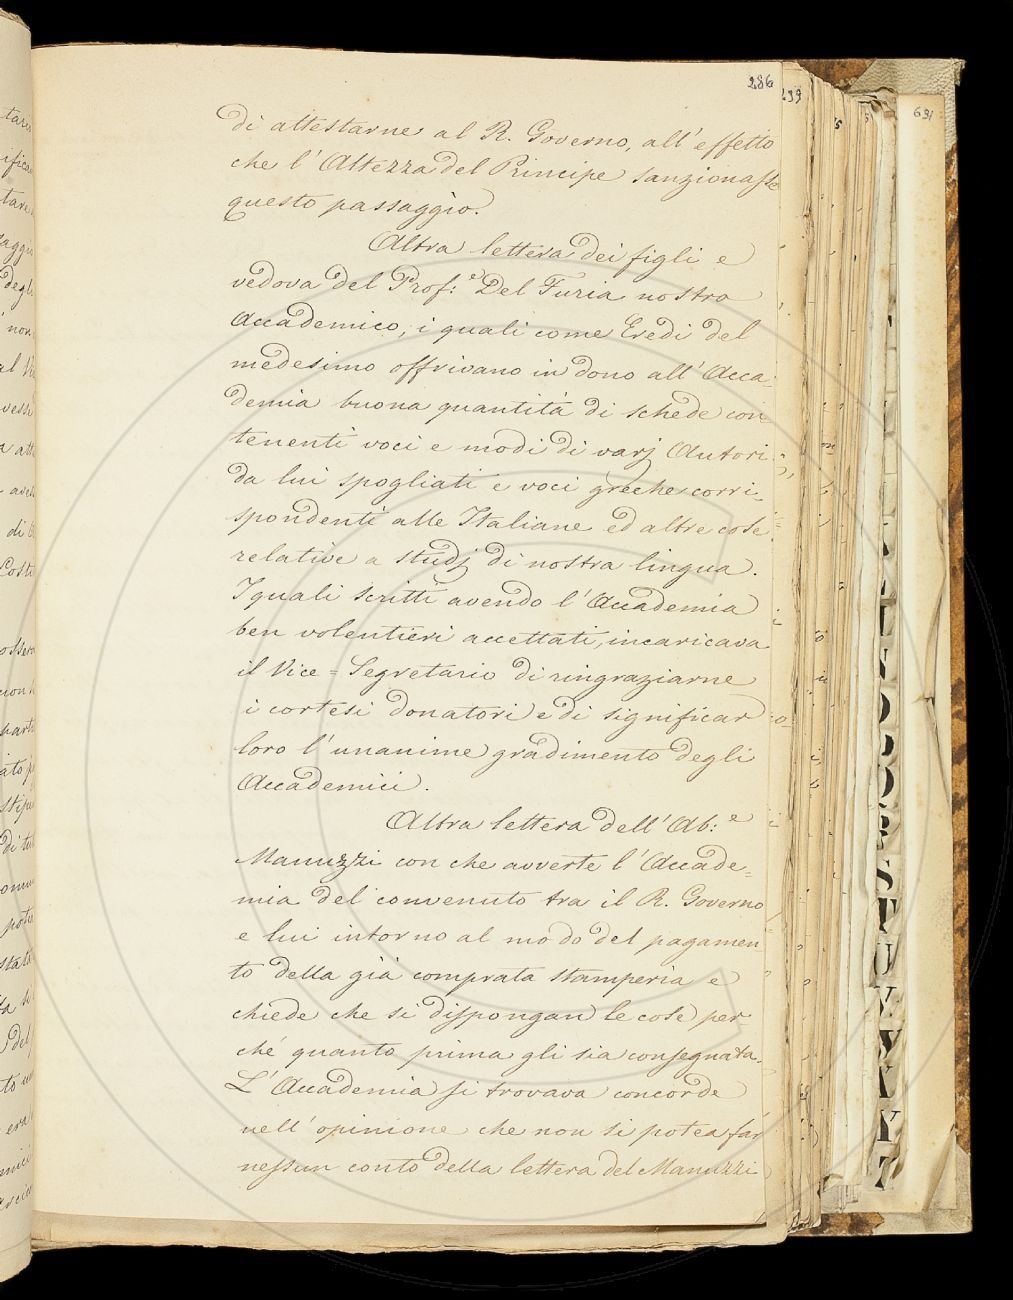 286
299
631
di attestarne al R. Governo, all'effetto
che l'Altezza del Principe sanzionasse
questo passaggio.
Altra lettera dei figli e
vedova del Prof:e Del Furia nostro
Accademico, i quali come Eredi del
medesimo offrivano in dono all'Acca-
demia buona quantità di schede con
tenenti voci e modi di varj Autori
da lui spogliati e voci greche corri-
spondenti alle Italiane ed altre cose
relative a studj di nostra lingua.
I quali scritti avendo l'Accademia
ben volentieri accettati, incaricava
il Vice=Segretario di ringraziarne
i cortesi donatori e di significar
loro l'unanime gradimento degli
Accademici.
Altra lettera dell'Ab:e
Manuzzi con che avverte l'Accade=
mia del convenuto tra il R. Governo
e lui intorno al modo del pagamen
to della già comprata stamperia e
chiede che si dispongan le cose per-
ché quanto prima gli sia consegnata.
L'Accademia si trovava concorde
nell'opinione che non si potea far
nessun conto della lettera del Manuzzi
S
T
U
V
X
Y